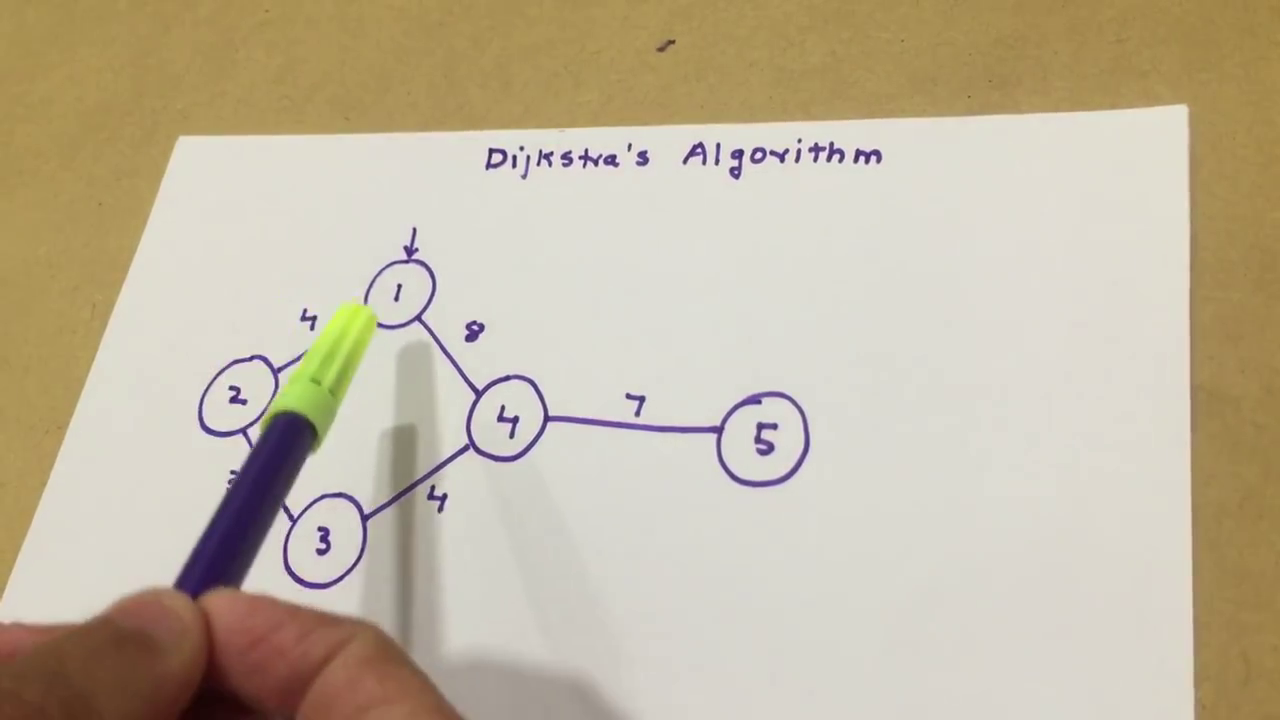 Dijkstra's Algorithm
1
4
8
2
4
7
5
4
3